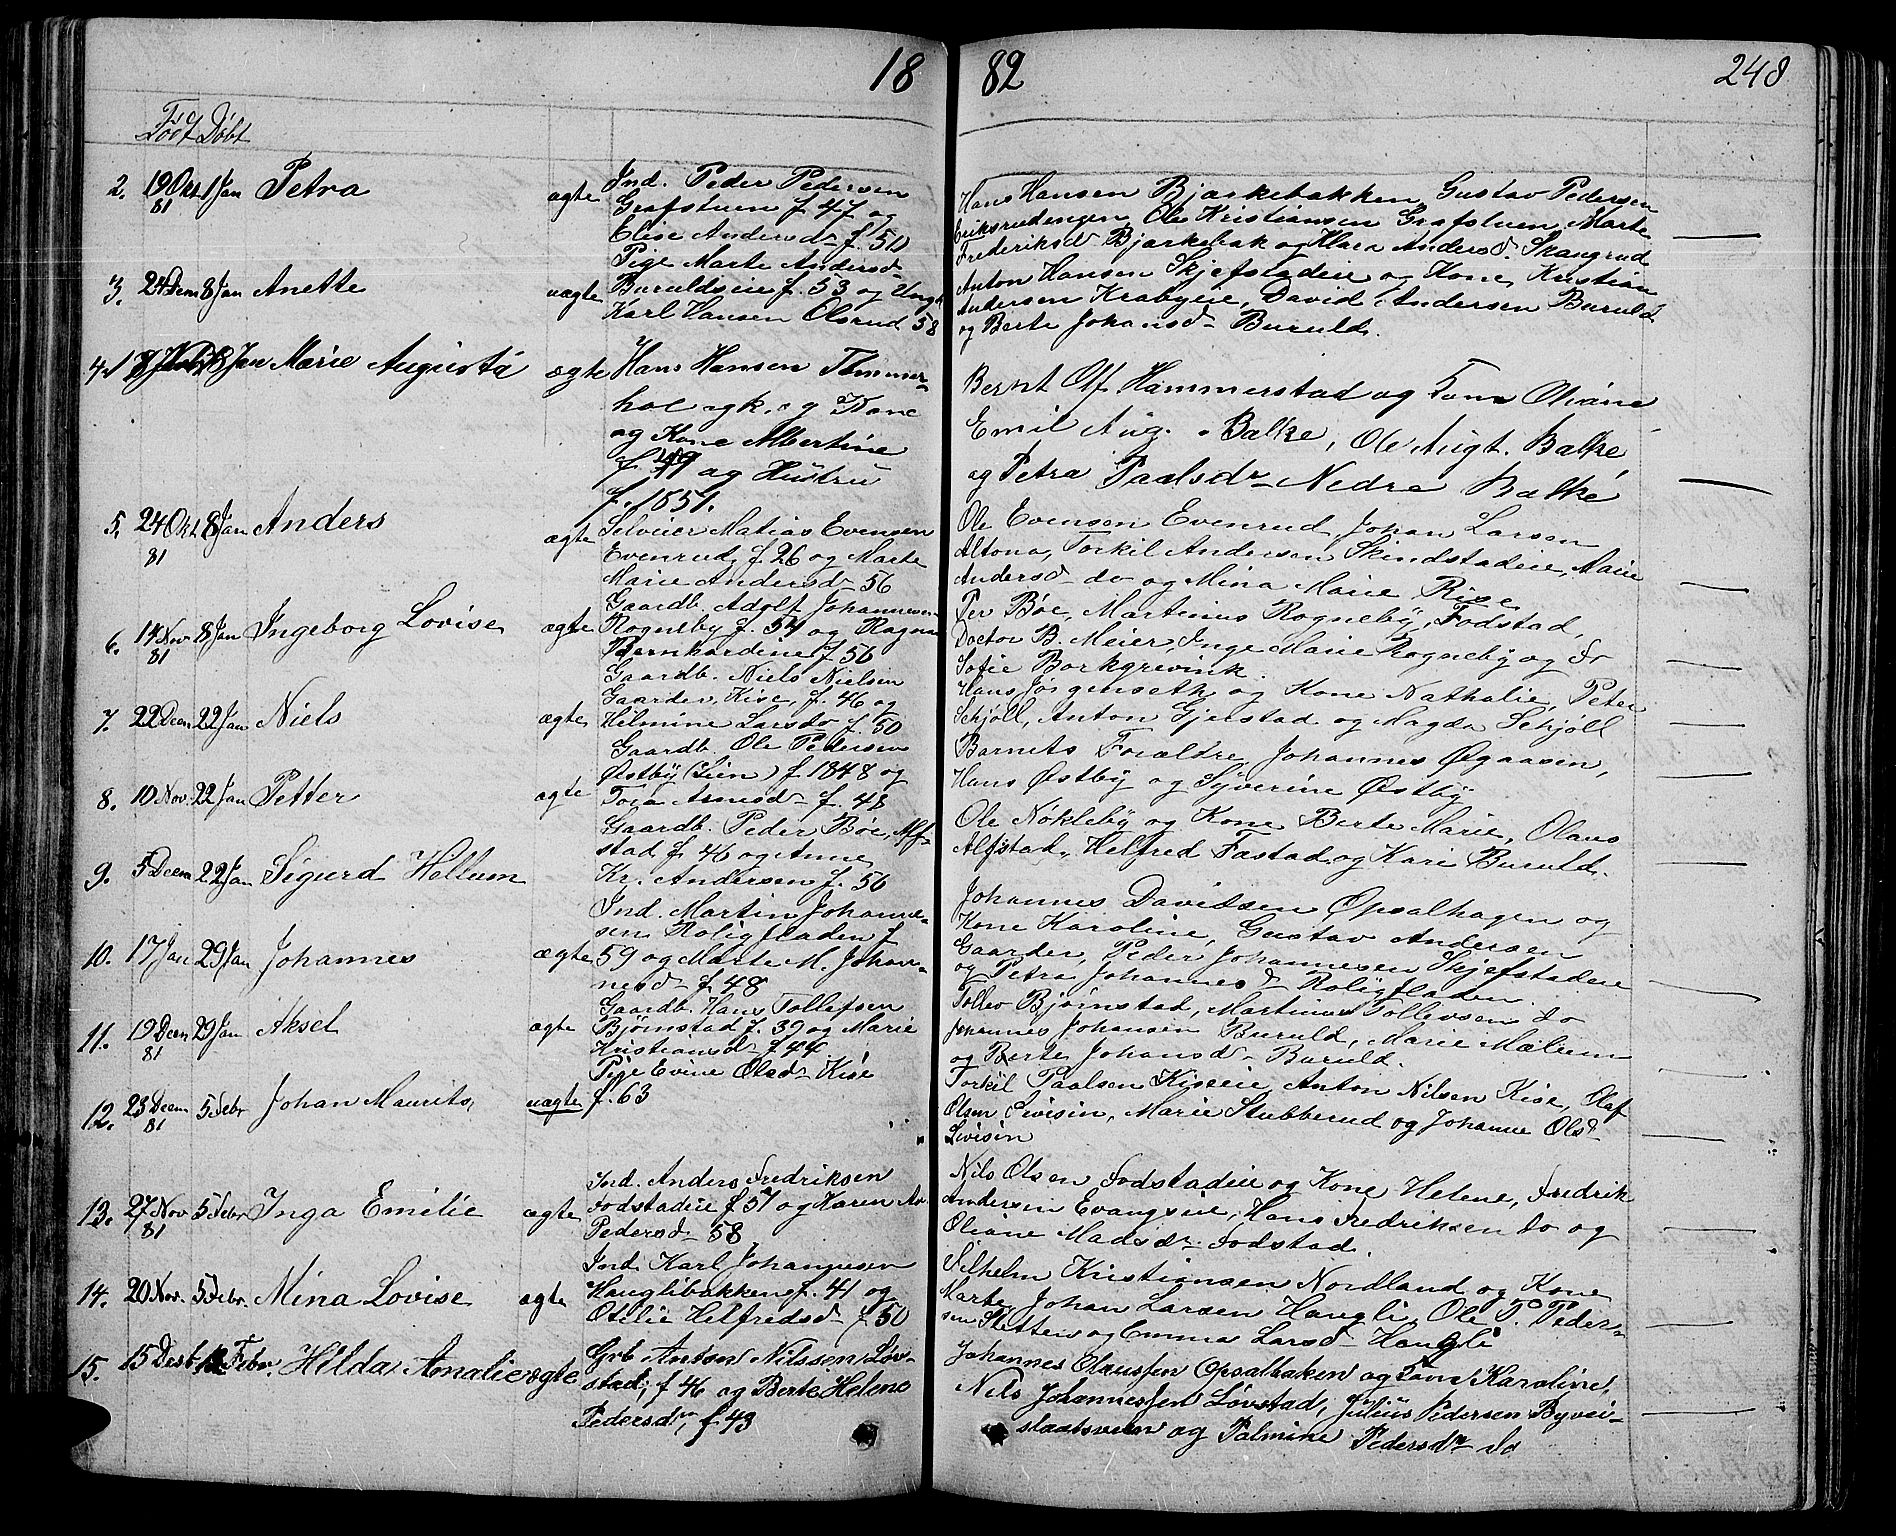 18 82 248
Født Døbt
2. 19 Okt 1 Jan Petra ægte Ind. Peder Pedersen
81 Grafstuen f. 47 og
Elise Andersd. f. 50
Hans Hansen Bjærkebakken Gustav Pedersen
Eriksrudengen, Ole Kristiansen Grafstuen, Marte
Frederiksd. Bjærkebak og Klara Andersd. Skangrud
3. 24 Decm 8 Jan Anette uægte Pige Marte Andersd.
Buruldseie f. 53 og Ungk
Karl Hansen Olsrud 58
Anton Hansen Skjefstadeie og Kone, Kristian
Andersen Krabyeie, David Andersen Buruld
og Berte Johansd. Buruld.
4. 8 Jan Marie Augusta ægte Hans Hansen Tømmer-
hol agk. og Kone
og Kone Albertine
f 49 og Hustru
f. 1851.
Bernt Olf Hammerstad og Kone Oliane
Emil Aug. Balke, Ole Augt. Balke,
og Petra Paalsdr Nedre Balke
5. 24 Okt 8 Jan Anders ægte Selveier Matias Evensen
81 Evenrud f. 26 og Marte
Marie Andersd 56
Ole Evensen Evenrud, Johan Larsen
Altona, Torkil Andersen Skindstadeie, Marie
Andersd do og Mina Marie Rise
6. 14 Nov 8 Jan Ingeborg Lovise ægte Gaardb. Adolf Johannesen
81 Rogneby f. 54 og Ragna
Bernhardine f. 56
Per Bøe, Martinus Rogneby, Fodstad,
Doctor B. Meier, Inge Marie Rogneby og do
Sofie Borkgrevink.
7. 22 Decm 22 Jan Niels ægte Gaardb. Niels Nielsen
Gaarder, Kise, f. 46 og
Hilmine Larsdr f. 50
Hans Jørgenseth og Kone Nathalie, Peter
Schjöll, Anton Gjerstad og Magda Schjöll
8. 10 Nov. 22 Jan Petter ægte Gaardb. Ole Pedersen
Østby (Lien) f. 1848 og
Toja Arnesd. f. 48
Barnets Forældre, Johannes Øgaasen,
Hans Østby og Syverine Østby
9. 5 Decm 22 Jan Sigurd Hellum Gaardb. Peder Bøe, Alf-
stad f. 46 og Anne
Kr. Andersen f. 56
Ole Nøkleby og Kone Berte Marie, Olaus
Alfstad, Helfred Fastad og Kari Buruld.
10. 17 Jan 29 Jan Johannes ægte Ind. Martin Johanne-
sen Roligfladen f
59 og Marte M. Johan-
nesd f. 48
Johannes Davidsen Opsalhagen og
Kone Karoline, Gustav Andersen
Gaarder, Peder Johannesen Skjefstadeie
og Petra Johannesd Roligfladen.
11. 19 Decm 29 Jan Aksel ægte Gaardb. Hans Tollefsen
81 Bjørnstad f. 39 og Marie
Kristiansd f. 44
Tollev Bjørnstad, Martinus Tollevsen do
Johannes Johansen Buruld, Marie Mælum
og Berte Johansd Buruld.
12. 23 Decm 5 Febr Johan Maurits, uægte Pige Evine Olsd Kise
81 f. 63
Torkil Paalsen Kiseeie Anton Nilsen Kise, Olaf
Olsen Sivisin, Marie Stubberud og Johanne Olsd
Sivisin
13. 27 Nov 5 Febr Inga Emilie ægte Ind. Anders Fredriksen
81 Fodstadeie f 57 og Karen An.
Pedersd. 58
Nils Olsen Fodstadeie og Kone Helene, Fredrik
Andersen Evangseie, Hans Fredriksen do og
Oliane Madsdr. Fodstad.
14. 20 Nov. 5 Febr. Mina Lovise ægte Ind. Karl Johannesen
Hauglibakken f. 41 og
Otilie Helfredsd. f 50
Vilhelm Kristiansen Nordland og Kone
Marte, Johan Larsen Haugli, Ole P. Peder-
sen Sletten og Emma Larsd. Haugli
15. 15 Decbr 12 Febr. Hilda Amalie ægte Grb Anton Nilssen Løv-
stad, f 46 og Berte Helene
Pedersdr, f. 43
Johannes Claussen Opsalbaken og Kone Karoline,
Nils Johannessen Løvstad, Julius Pedersen Byvei-
staatsveen og Palmine Pedersdr do